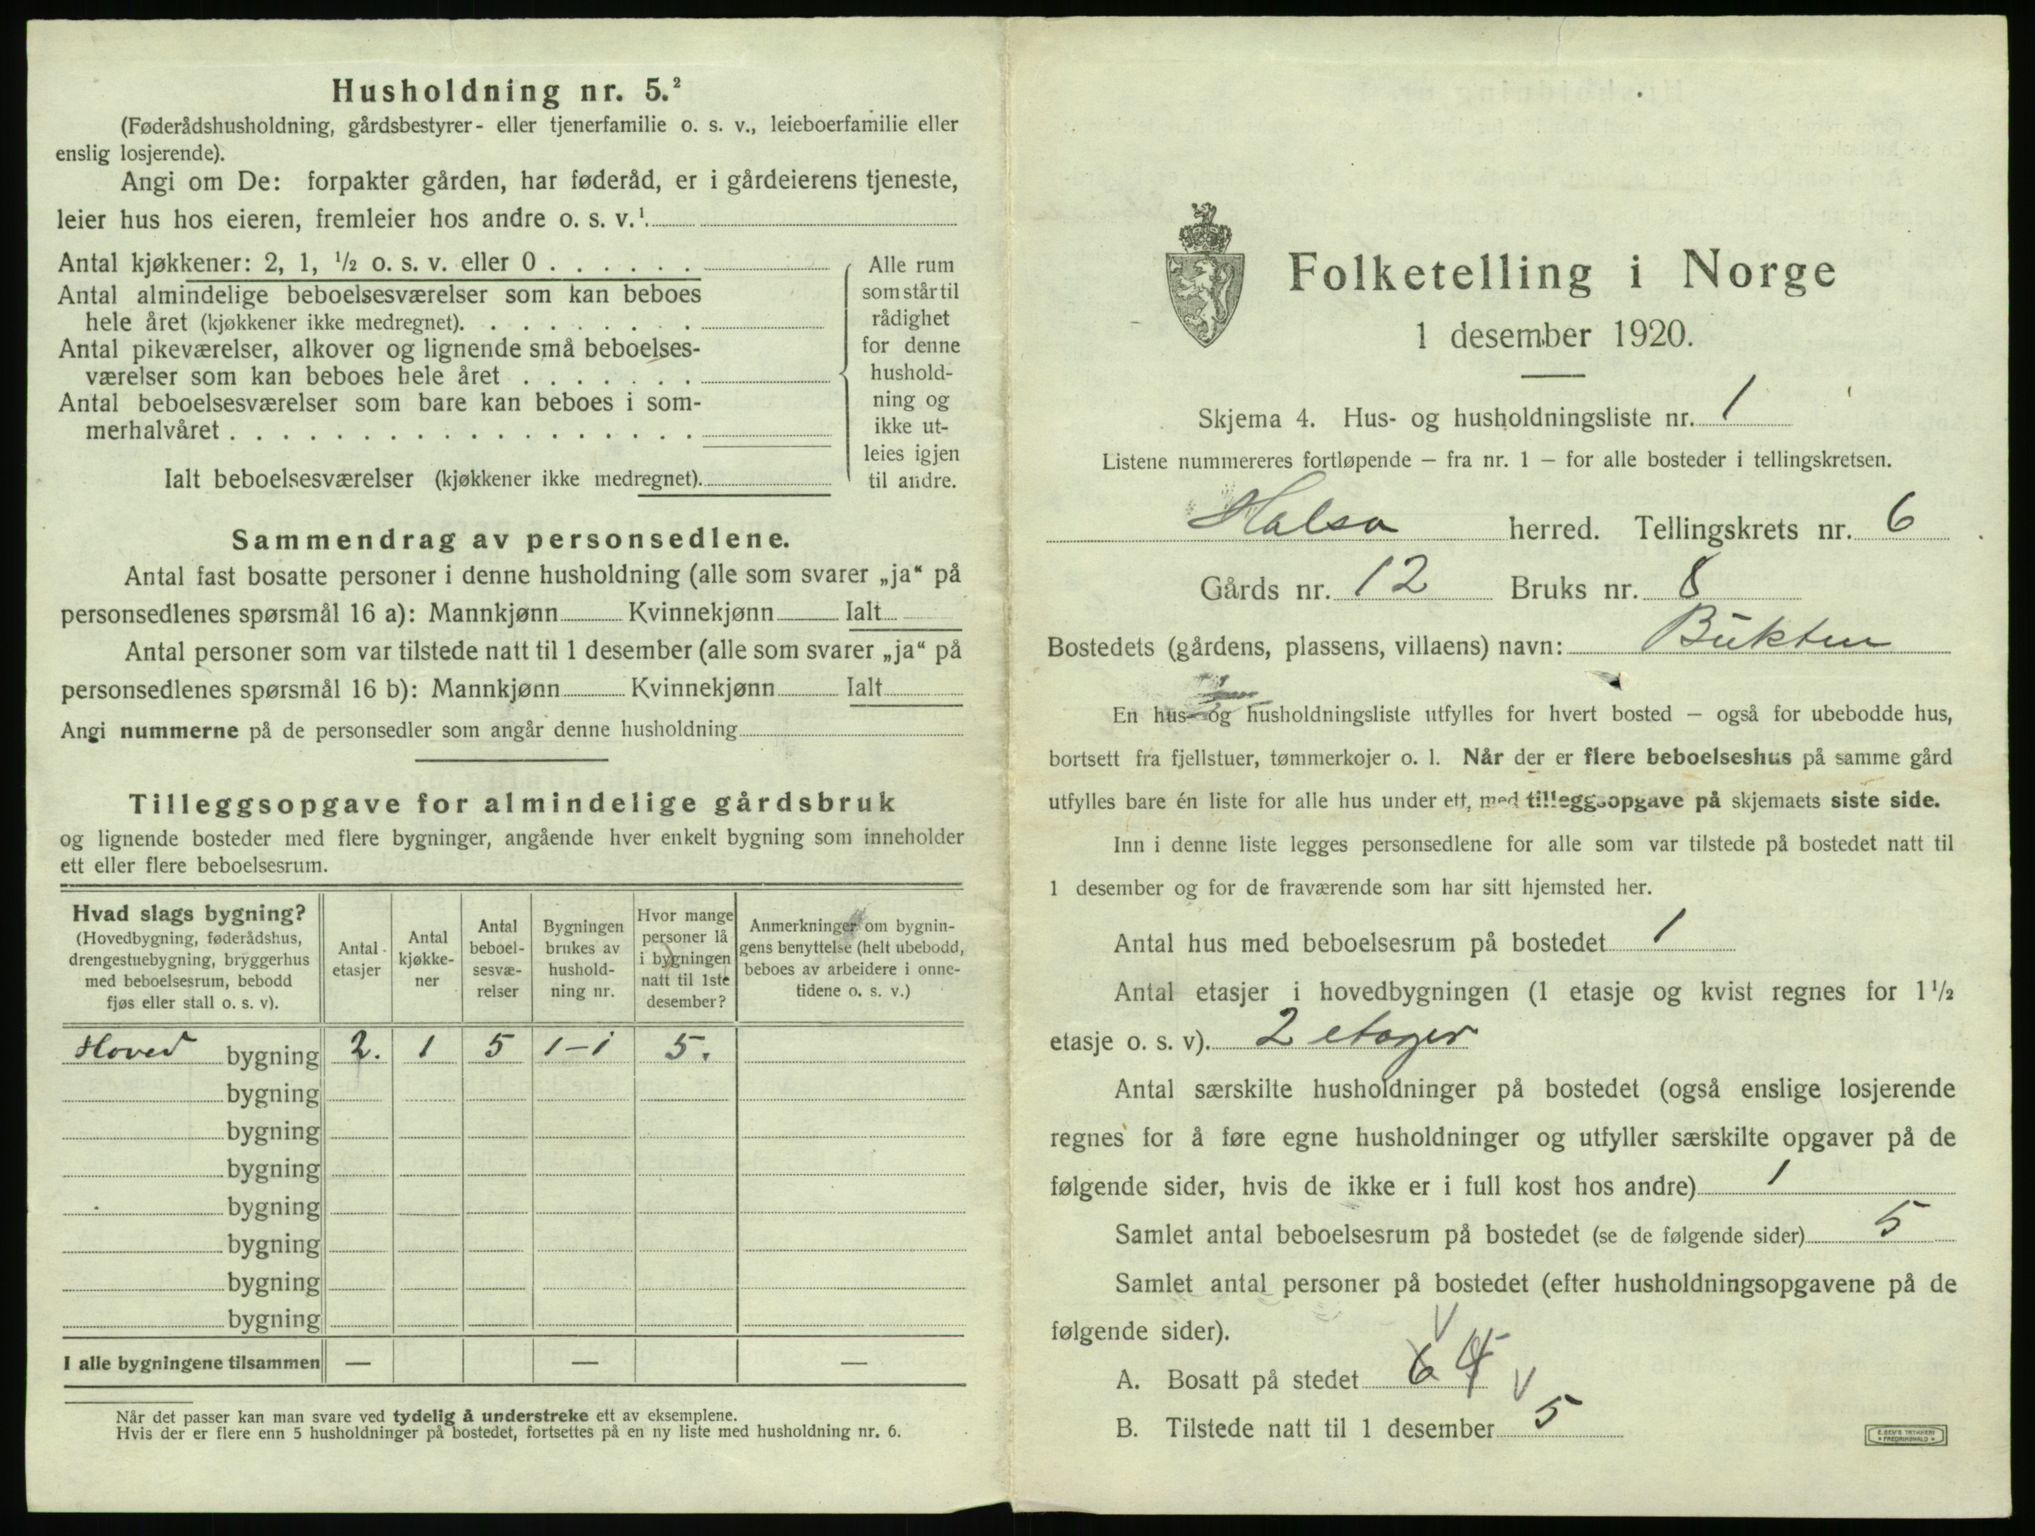 Husholdning nr. 5.²
(Føderådshusholdning, gårdsbestyrer- eller tjenerfamilie o. s. v., leieboerfamilie eller
enslig losjerende).
Angi om De: forpakter gården, har føderåd, er i gårdeierens tjeneste,
leier hus hos eieren, fremleier hos andre o. s. v.¹
Antal kjøkkener: 2, 1, ½ o. s. v. eller 0
Antal almindelige beboelsesværelser som kan beboes
hele året (kjøkkener ikke medregnet).
Antal pikeværelser, alkover og lignende små beboelses-
værelser som kan beboes hele året
Antal beboelsesværelser som bare kan beboes i som-
merhalvåret
Ialt beboelsesværelser (kjøkkener ikke medregnet).
Alle rum
som står til
rådighet
for denne
hushold-
ning og
ikke ut-
leies igjen
til andre.
Sammendrag av personsedlene.
Antal fast bosatte personer i denne husholdning (alle som svarer „ja“ på
personsedlenes spørsmål 16 a): Mannkjønn Kvinnekjønn Ialt
Antal personer som var tilstede natt til 1 desember (alle som svarer „ja“ på
personsedlenes spørsmål 16 b): Mannkjønn Kvinnekjønn Ialt
Angi nummerne på de personsedler som angår denne husholdning
Tilleggsopgave for almindelige gårdsbruk
og lignende bosteder med flere bygninger, angående hver enkelt bygning som inneholder
ett eller flere beboelsesrum.
Hvad slags bygning?
(Hovedbygning, føderådshus,
drengestuebygning, bryggerhus
med beboelsesrum, bebodd
fjøs eller stall o. s. v).
Antal
etasjer
Antal
kjøkke-
ner
Antal
beboel-
sesvæ-
relser
Bygningen
brukes av
hushold-
ning nr.
Hvor mange
personer lå
i bygningen
natt til 1ste
desember?
Anmerkninger om bygnin-
gens benyttelse (helt ubebodd,
beboes av arbeidere i onne-
tidene o. s. v.)
Hoved bygning 2. 1 5 1-1 5.
bygning
bygning
bygning
bygning
bygning
bygning
bygning
I alle bygningene tilsammen — — —
Når det passer kan man svare ved tydelig å understreke ett av eksemplene.
Hvis der er flere enn 5 husholdninger på bostedet, fortsettes på en ny liste med husholdning nr. 6.
Folketelling i Norge
1 desember 1920.
Skjema 4. Hus- og husholdningsliste nr. 1
Listene nummereres fortløpende – fra nr. 1 – for alle bosteder i tellingskretsen.
Halsa herred. Tellingskrets nr. 6
Gårds nr. 12 Bruks nr. 8
Bostedets (gårdens, plassens, villaens) navn: Bukten
En hus- og husholdningsliste utfylles for hvert bosted – også for ubebodde hus,
bortsett fra fjellstuer, tømmerkojer o. l. Når der er flere beboelseshus på samme gård
utfylles bare én liste for alle hus under ett, med tilleggsopgave på skjemaets siste side.
Inn i denne liste legges personsedlene for alle som var tilstede på bostedet natt til
1 desember og for de fraværende som har sitt hjemsted her.
Antal hus med beboelsesrum på bostedet 1
Antal etasjer i hovedbygningen (1 etasje og kvist regnes for 1½
etasje o. s. v). 2 etager
Antal særskilte husholdninger på bostedet (også enslige losjerende
regnes for å føre egne husholdninger og utfyller særskilte opgaver på de
følgende sider, hvis de ikke er i full kost hos andre) 1
Samlet antal beboelsesrum på bostedet (se de følgende sider) 5
Samlet antal personer på bostedet (efter husholdningsopgavene på de
følgende sider).
A. Bosatt på stedet 6
B. Tilstede natt til 1 desember 5